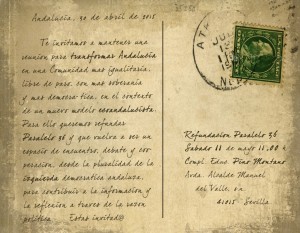 Andalucía, 30 de abril de 2015
Te invitamos a mantener una
reunión para transformar Andalucía
en una Comunidad mas igualitaria,
libre de paro, con mas soberanía
y mas democratica, en el contexto
de un nuevo modelo ecoandalucista.
Para ello queremos refundar
Paralelo 36 y que vuelva a ser un
espacio de encuentro, debate y coo-
peración, desde la pluralidad de la
izquierda democratica andaluza,
para contribuir a la información y
la reflexión a traves de la razon
politica. Estas invitad@
Refundacion Paralelo 36
Sabado 11 de mayo 11,00 h
Compl. Educ. Pino Montano
Avda. Alcalde Manuel
del Valle, sn.
41015 Sevilla